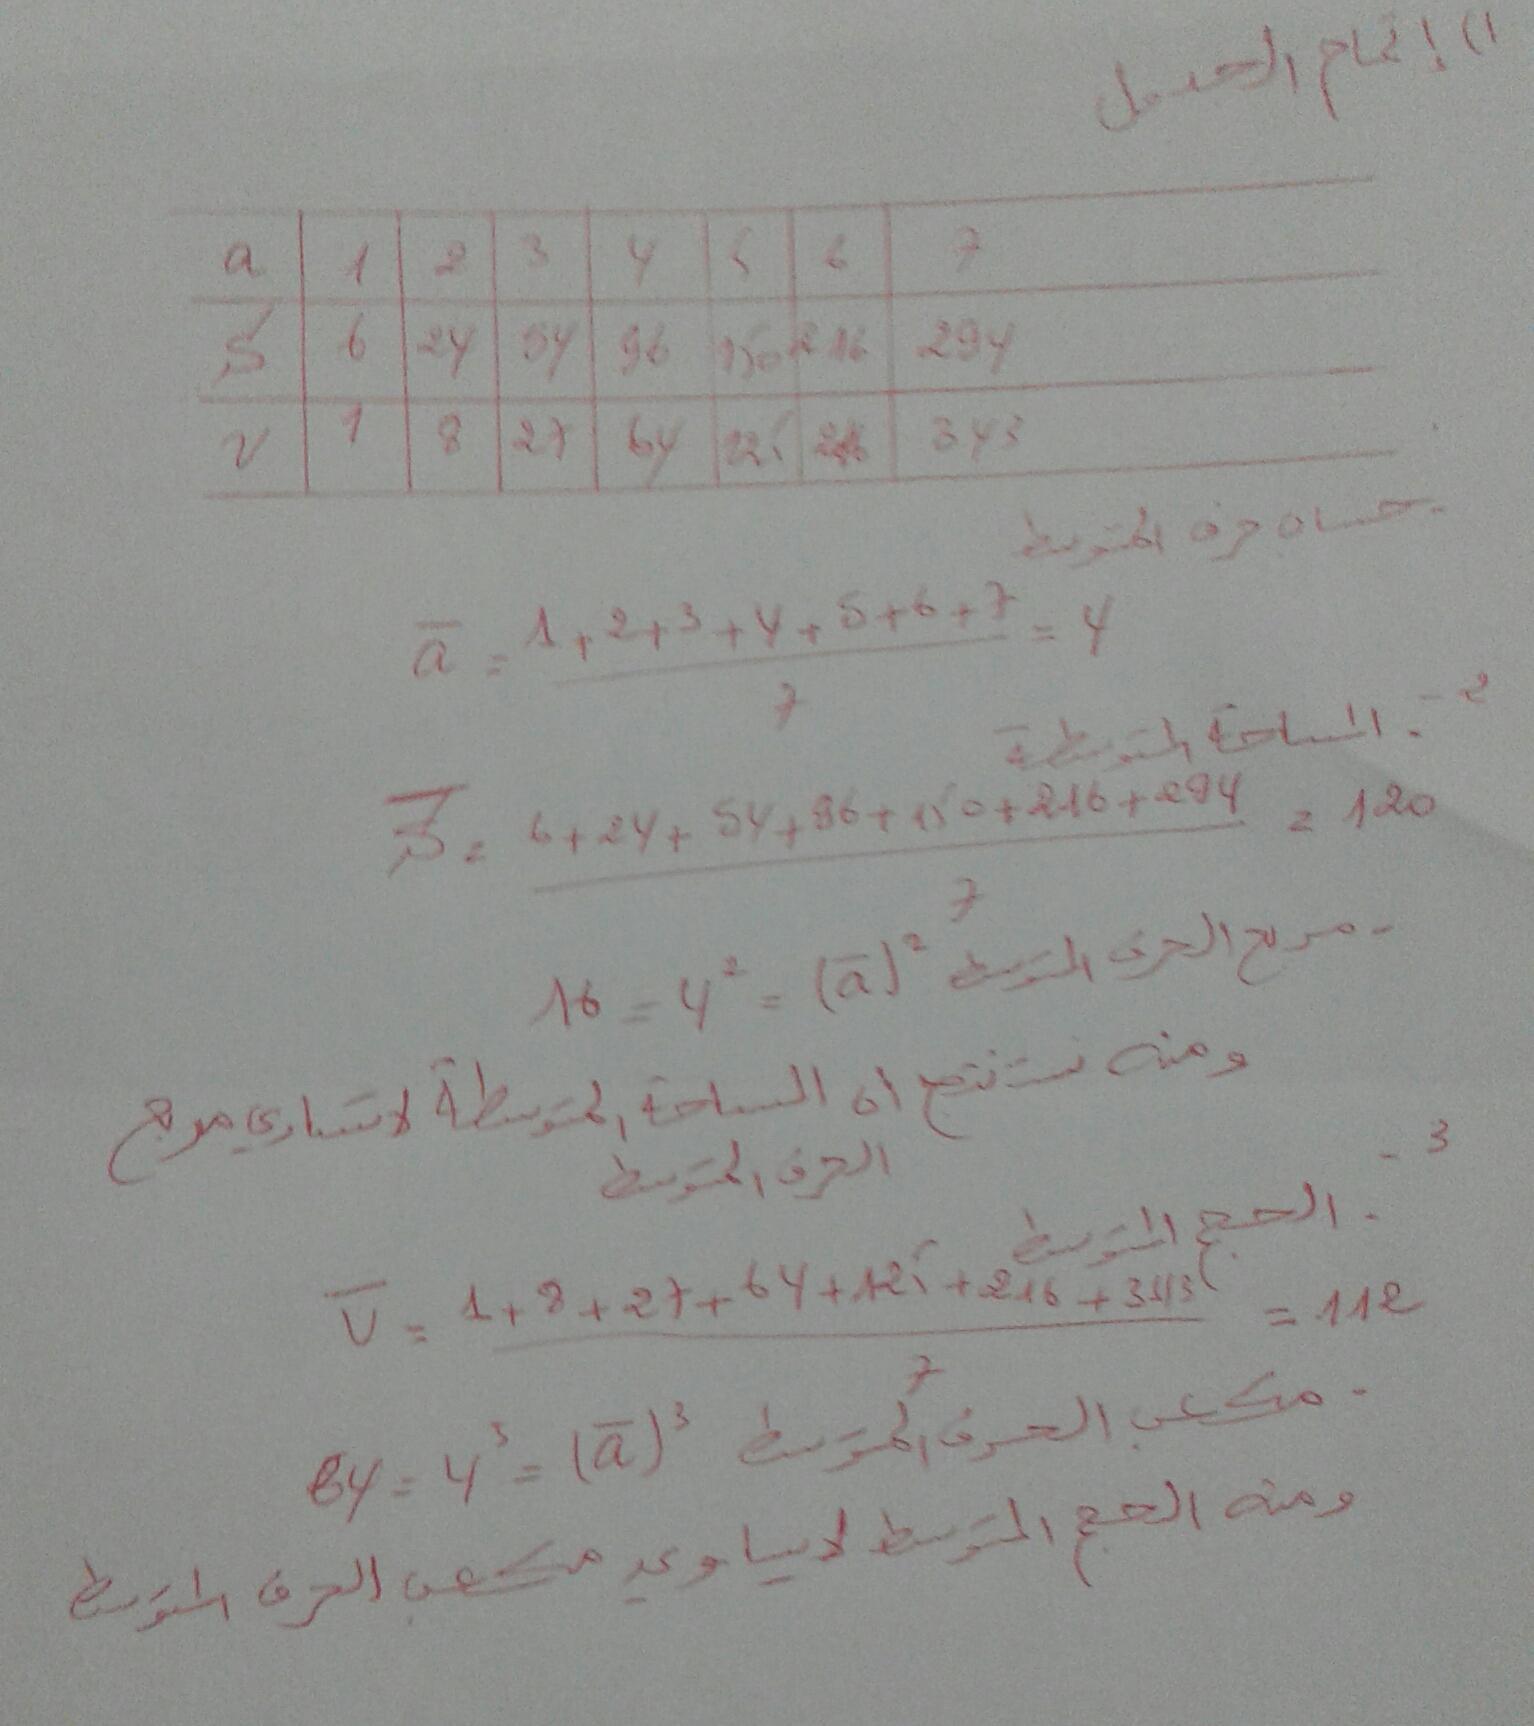 1) إتمام الجدول
a 1 2 3 4 5 6 7
S 6 24 54 96 150 216 294
V 1 8 27 64 125 216 343
- حساب حرف المتوسط
a̅ = (1+2+3+4+5+6+7)/7 = 4
2 - . المساحة المتوسطة
S̅ = (6+24+54+96+150+216+294)/7 = 120
- مربع الحرف المتوسط (a̅)² = 4² = 16
ومنه نستنتج أن المساحة المتوسطة لا تساوي مربع
الحرف المتوسط
3 -
. الحجم المتوسط
V̅ = (1+8+27+64+125+216+343)/7 = 112
- مكعب الحرف المتوسط (a̅)³ = 4³ = 64
ومنه الحجم المتوسط لا يساوي مكعب الحرف المتوسط